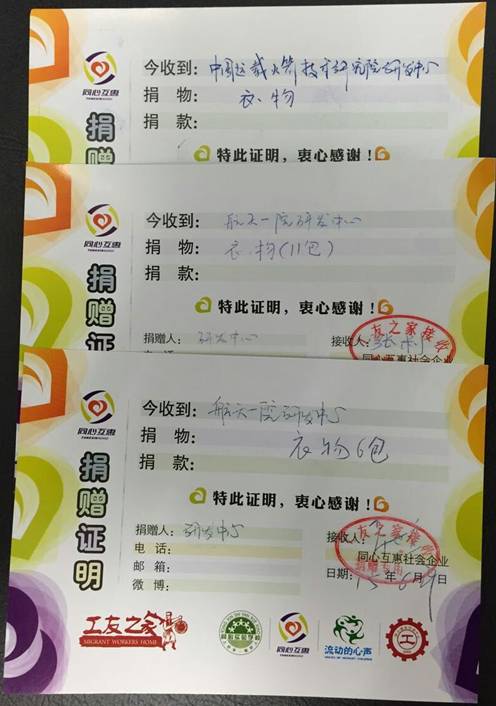 同心互惠
TONGXINHUHUI
捐赠
今收到：中国运载火箭技术研究院研发中心
捐 物：衣物
捐 款：
特此证明，衷心感谢！
同心互惠
TONGXINHUHUI
捐赠证
今收到：航天一院研发中心
捐 物：衣物（11包）
捐 款：
特此证明，衷心感谢！
捐赠人：研发中心
接收人：
友之家接收
同心互惠社会企业
同心互惠
TONGXINHUHUI
捐赠证明
今收到：航天一院研发中心
捐 物：衣物6包
捐 款：
特此证明，衷心感谢！
捐赠人：研发中心
接收人：
电 话：
友之家接
同心互惠社会企业
邮 箱：
日期：15年6月9
微 博：
工友之家
MIGRANT WORKERS HOME
同心互惠
流动的心声
工